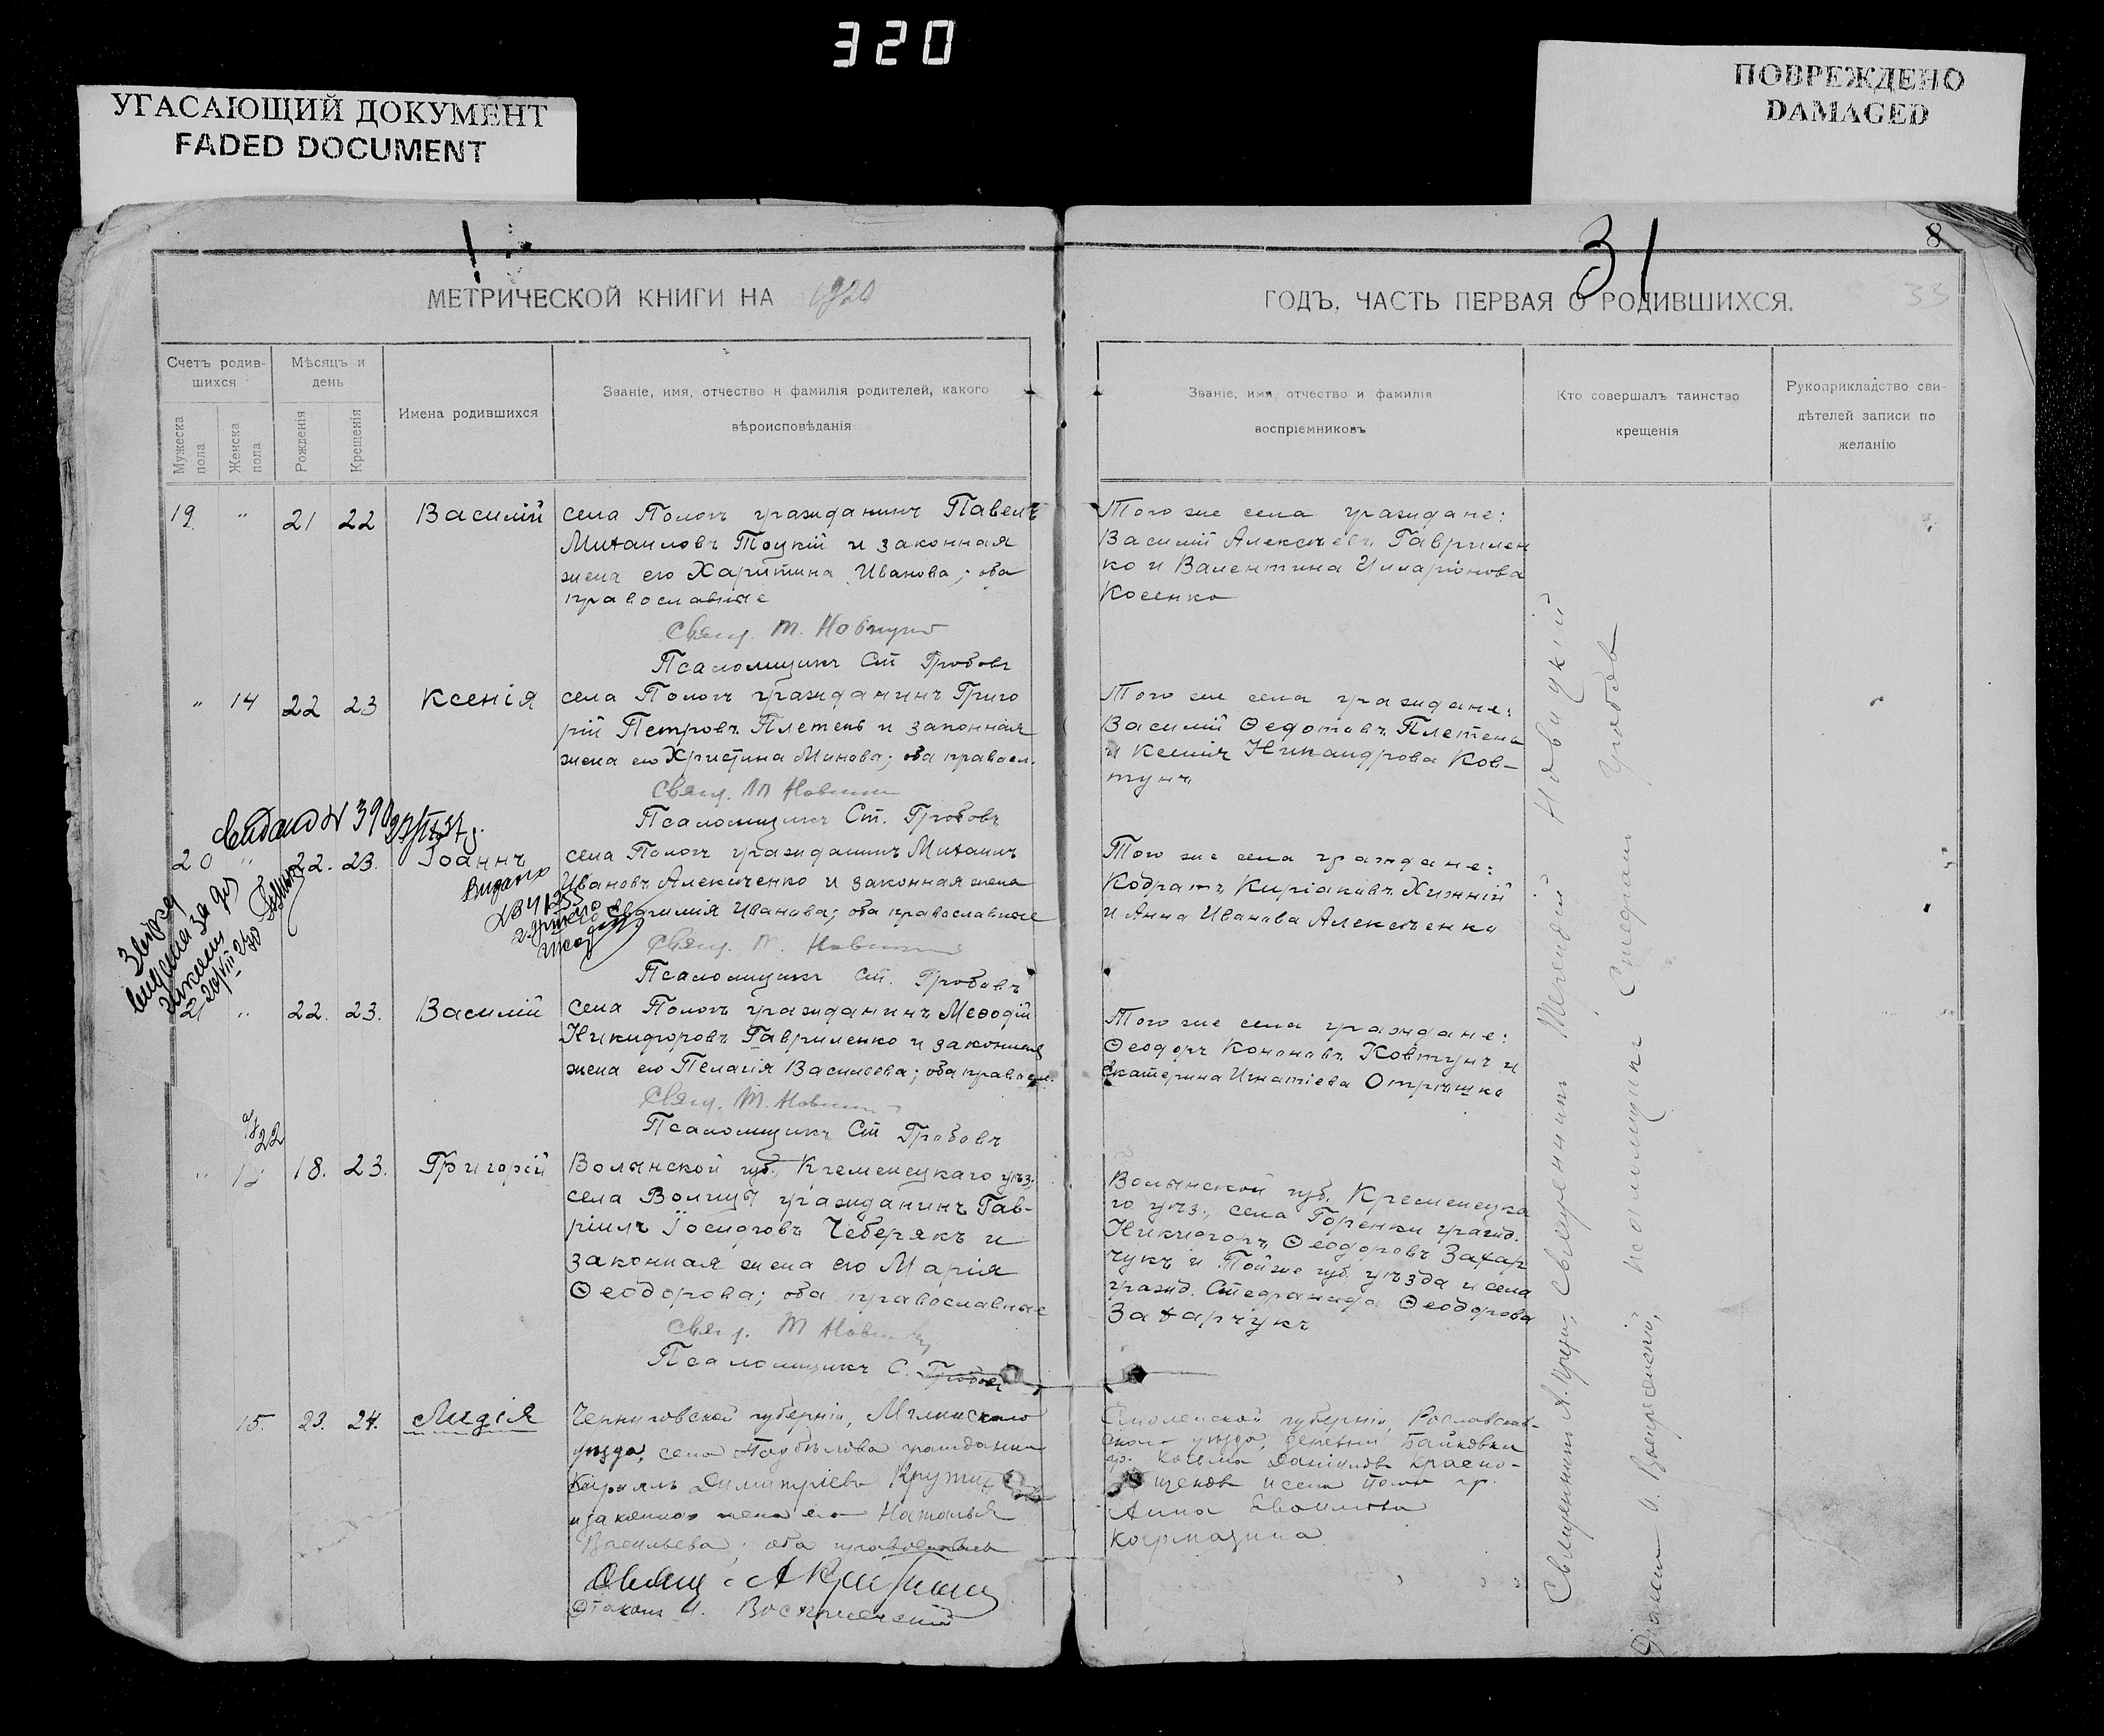 320
УГАСАЮЩИЙ ДОКУМЕНТ
FADED DOCUMENT
ПОВРЕЖДЕНО
DAMAGED
31
8
33
МЕТРИЧЕСКОЙ КНИГИ НА 1920
ГОДЪ, ЧАСТЬ ПЕРВАЯ О РОДИВШИХСЯ.
Счетъ родив-
шихся
Мужеска
пола
Женска
пола
Мѣсяцъ и
день
Рожденія
Крещенія
Имена родившихся
Званіе, имя, отчество и фамилія родителей, какого
вѣроисповѣданія
Званіе, имя, отчество и фамилія
воспріемниковъ
Кто совершалъ таинство
крещенія
Рукоприкладство сви-
дѣтелей записи по
желанію
19 " 21 22 Василій
села Пологъ гражданинъ Павелъ
Михаиловъ Тоцкій и законная
жена его Харитина Иванова; оба
православные
Свящ. М. Новицкій
Псаломщикъ Ст Гробовъ
Того же села граждане:
Василій Алексѣевъ Гаврилен
ко и Валентина Илларіонова
Косенко
" 14 22 23 Ксенія
села Пологъ гражданинъ Григо
рій Петровъ Плетень и законная
жена его Христина Минова; оба правосл.
Свящ. М Новицкій
Псаломщикъ Ст. Гробовъ
Того же села граждане:
Василій Ѳедотовъ Плетень
и Ксенія Никандрова Ков-
тунъ
20 " 22. 23. Іоаннъ
села Пологъ гражданинъ Михаилъ
Ивановъ Алексѣенко и законная жена
Иванова; оба православные
Свящ. М. Новицкій
Псаломщикъ Ст. Гробовъ
Того же села граждане:
Кодратъ Киріаковъ Хижній
и Анна Иванова Алексѣенко
Видано
21 " 22. 23. Василій
села Пологъ гражданинъ Меѳодій
Никифоровъ Гавриленко и законная
жена его Пелагія Василева; оба правосл.
Свящ. М. Новицкій
Псаломщикъ Ст Гробовъ
Того же села граждане:
Ѳеодоръ Кононовъ Ковтунъ и
Екатерина Игнатіева Отрѣшко
22
" 18. 23. Григорій
Волынской губ., Кременецкаго уѣз.,
села Волицы гражданинъ Гав-
ріилъ Іосифовъ Чеберякъ и
законная жена его Марія
Ѳеодорова; оба православные
Свящ. М Новицкій
Псаломщикъ С. Гробовъ
Волынской губ. Кременецка
го уѣз., села Горенки гражд.
Никифоръ Ѳеодоровъ Захар
чукъ и Той же губ. уѣзда и села
гражд. Стефанида Ѳеодорова
Захарчукъ
15. 23. 24. Лидія
Черниговской губерніи, Мглинскаго
уѣзда, села гражданинъ
Кириллъ Димитріевъ
и законная жена его Наталья
Васильева; оба православные
Свящ.
Діаконъ И. Воскресенскій
Смоленской губерніи, Рославль-
скаго уѣзда, деревни Байковки
гр. Косьма Даніиловъ Красно-
щековъ и села Пологъ гр.
Анна
Кормазина
Священникъ Новицкій
псаломщикъ Стефанъ Гробовъ
Діаконъ И. Воскресенскій,